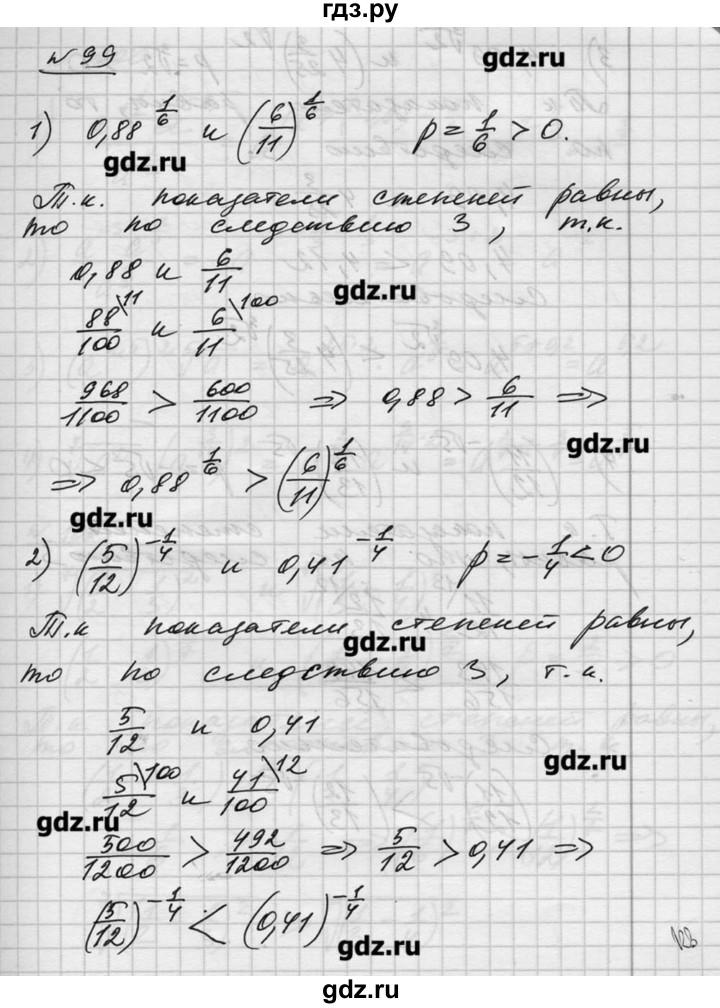 гдз.ру
№ 99
gdz.ru
1) 0,88^(1/6) и (6/11)^(1/6) p = 1/6 > 0.
gdz.ru
Т.к. показатели степеней равны,
то по следствию 3, т.к.
0,88 и 6/11
gdz.ru
88/100 \11 и 6/11 \100
968/1100 > 600/1100 ⇒ 0,88 > 6/11 ⇒
gdz.ru
⇒ 0,88^(1/6) > (6/11)^(1/6)
gdz.ru
2) (5/12)^(-1/4) и 0,41^(-1/4) p = -1/4 < 0
Т.к показатели степеней равны,
gdz.ru
то по следствию 3, т.к.
5/12 и 0,41
gdz.ru
5/12 \100 и 41/100 \12
gdz.ru
500/1200 > 492/1200 ⇒ 5/12 > 0,41 ⇒
(5/12)^(-1/4) < (0,41)^(-1/4)
gdz.ru
gdz.ru